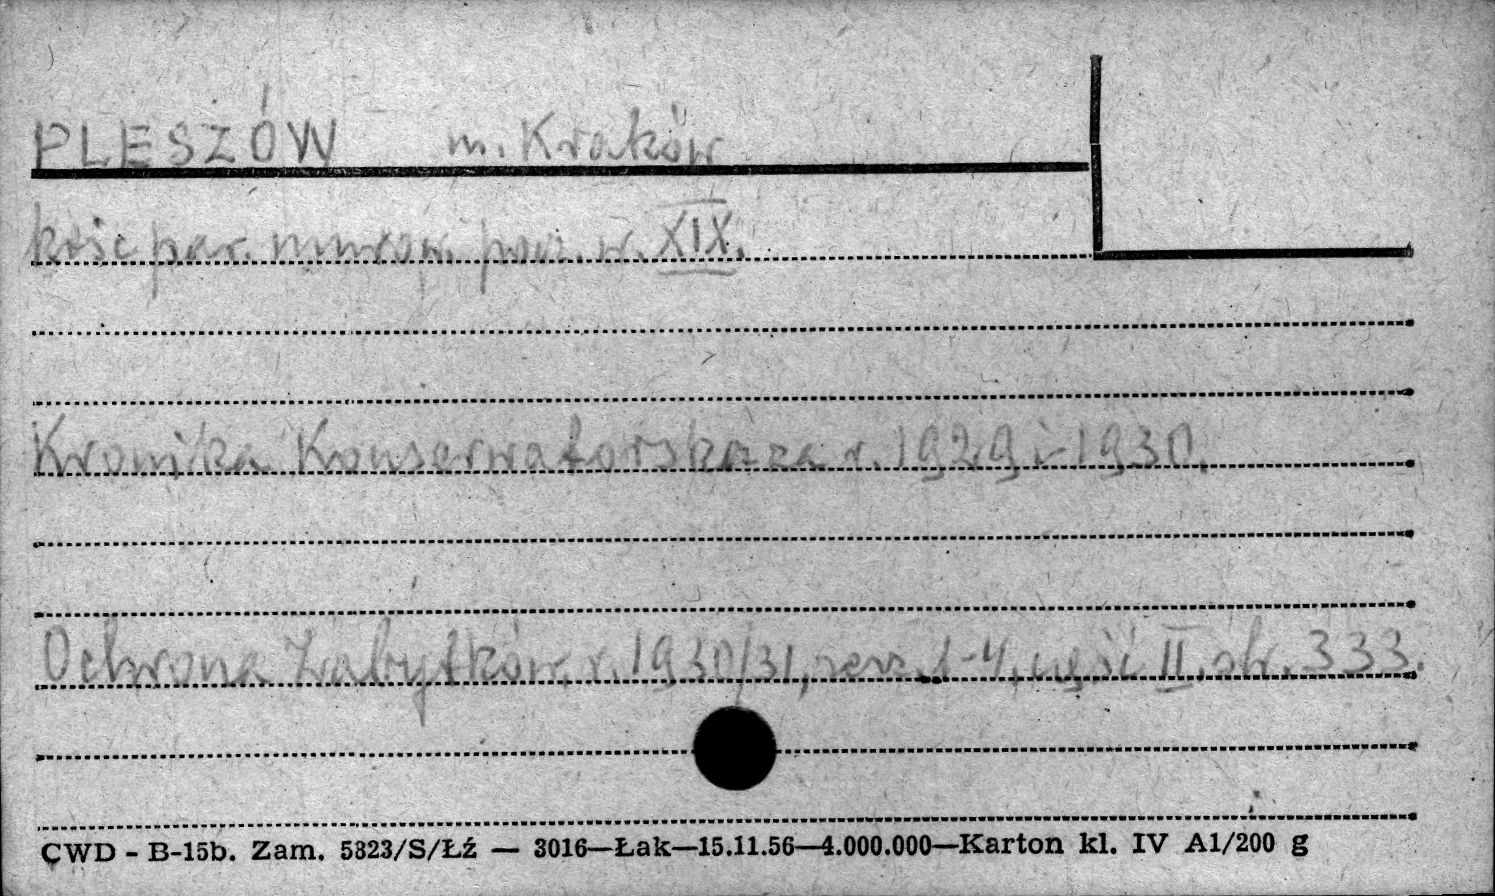 PLESZÓW m. Kraków
kośc par. murow. pocz. w. XIX.
Kronika Konserwatorska za r. 1929 i 1930.
Ochrona Zabytków, r. 1930/31, zesz. 1-4, część II, str. 333.
CWD - B-15b. Zam. 5823/S/Łź — 3016—Łak—15.11.56—4.000.000—Karton kl. IV A1/200 g